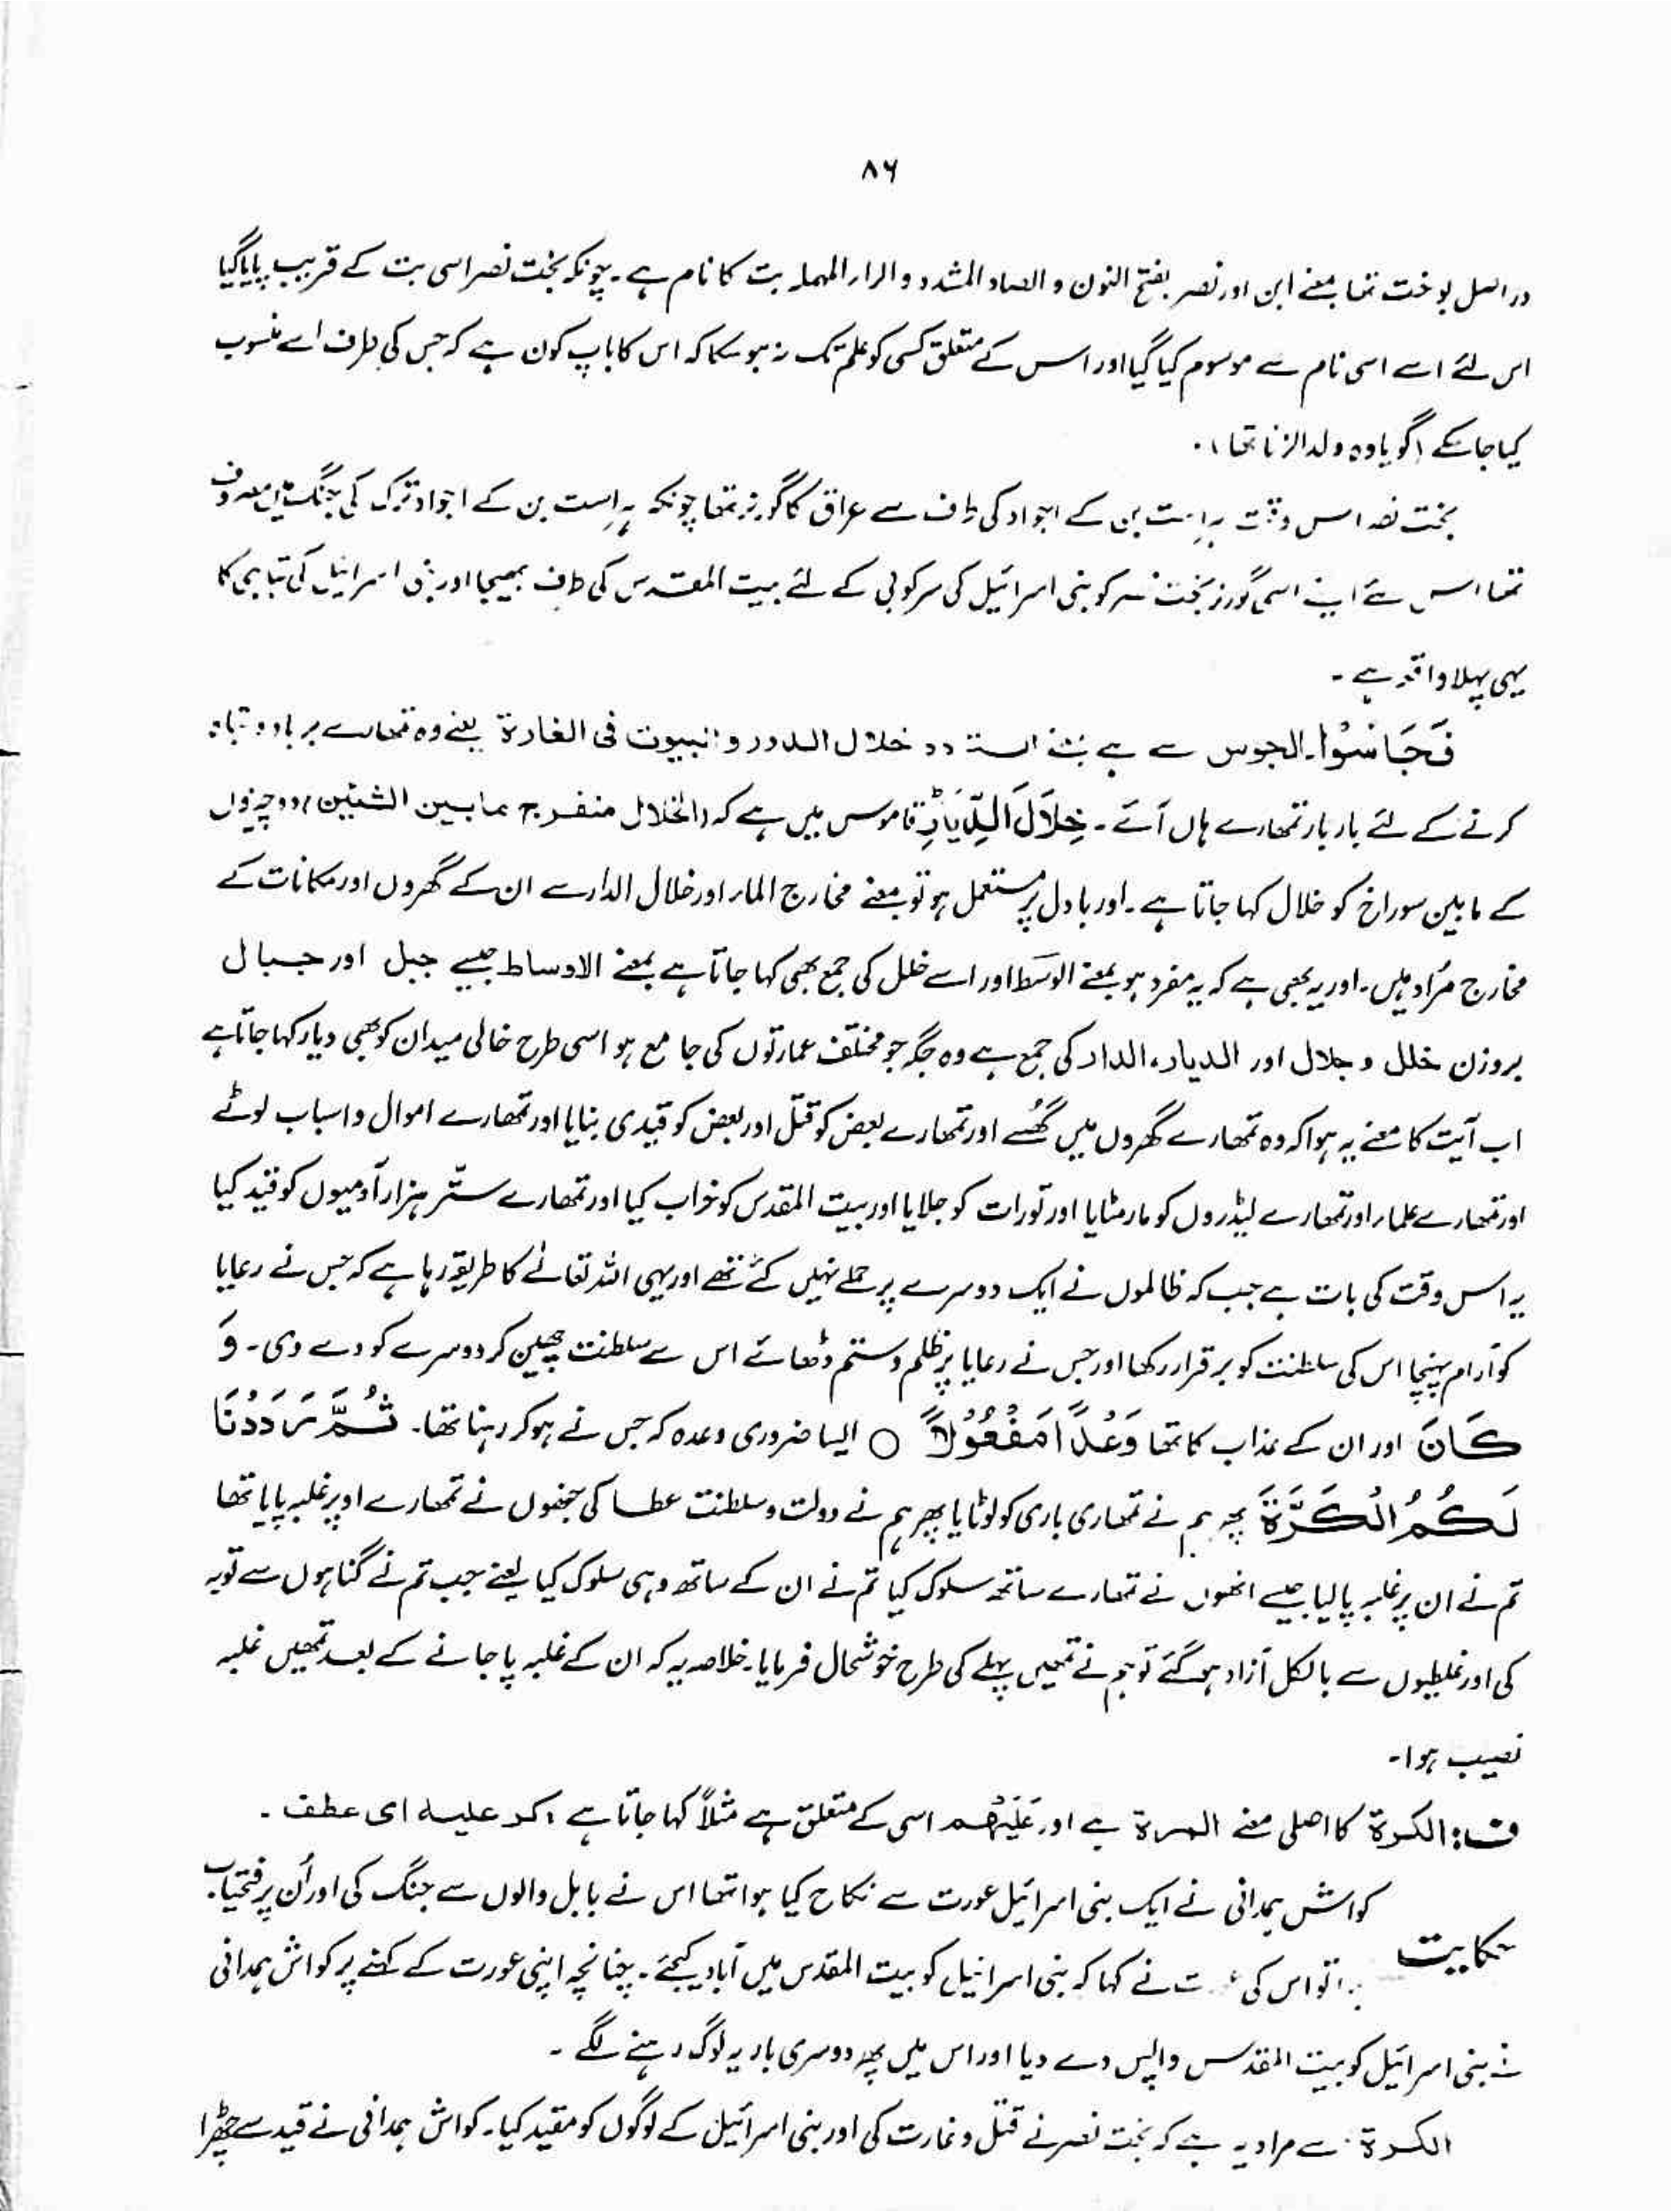 ۸۶
دراصل بوخت تھا بمعنے ابن اور نصر بفتح النون و الصاد المشدد و الرار المہملہ بت کا نام ہے۔ چونکہ بخت نصر اسی بت کے قریب پایا گیا
اس لئے اسے اسی نام سے موسوم کیا گیا اور اس کے متعلق کسی کو علم تک نہ ہو سکا کہ اس کا باپ کون ہے کہ جس کی طرف اسے منسوب
کیا جا سکے (گویا وہ ولد الزنا تھا)۔
بخت نصر اس وقت لہراست بن کے اجواد کی طرف سے عراق کا گورنر تھا چونکہ لہراست بن کے اجواد ترک کی جنگ میں مصروف
تھا اس لئے اپنے اسی گورنر بخت نصر کو بنی اسرائیل کی سرکوبی کے لئے بیت المقدس کی طرف بھیجا اور بنی اسرائیل کی تباہی کا
یہی پہلا واقعہ ہے۔
فَجَاسُوْا۔ الجوس سے ہے خلال الدور و البیوت فی الغارة یعنے وہ تمھارے برباد و تباہ
کرنے کے لئے بار بار تمھارے ہاں آئے۔ خِلٰلَ الدِّیَارِ قاموس میں ہے کہ (الخلال منفرج مابین الشیئین) دو چیزوں
کے مابین سوراخ کو خلال کہا جاتا ہے۔ اور بادل پر مستعمل ہو تو بمعنے مخارج المار اور خلال الدار سے ان کے گھروں اور مکانات کے
مخارج مُراد ہیں۔ اور یہ بھی ہے کہ یہ مفرد ہو بمعنے الوسَط اور اسے خلل کی جمع بھی کہا جاتا ہے بمعنے الاوساط جیسے جبل اور جبال
بروزن خلل و جلال اور الدیار، الدار کی جمع ہے وہ جگہ جو مختلف عمارتوں کی جامع ہو اسی طرح خالی میدان کو بھی دیار کہا جاتا ہے
اب آیت کا معنے یہ ہوا کہ وہ تمھارے گھروں میں گھُسے اور تمھارے بعض کو قتل اور بعض کو قیدی بنایا اور تمھارے اموال و اسباب لوٹے
اور تمھارے علمار اور تمھارے لیڈروں کو مار مٹایا اور تورات کو جلایا اور بیت المقدس کو خراب کیا اور تمھارے ستّر ہزار آدمیوں کو قید کیا
یہ اس وقت کی بات ہے جب کہ ظالموں نے ایک دوسرے پر حملے نہیں کئے تھے اور یہی اللہ تعالٰے کا طریقہ رہا ہے کہ جس نے رعایا
کو آرام پہنچا اس کی سلطنت کو برقرار رکھا اور جس نے رعایا پر ظلم و ستم ڈھائے اس سے سلطنت چھین کر دوسرے کو دے دی۔ وَ
کَانَ اور ان کے عذاب کا تھا وَعْدًا مَّفْعُوْلًا ○ ایسا ضروری وعدہ کہ جس نے ہو کر رہنا تھا۔ ثُمَّ رَدَدْنَا
لَکُمُ الْکَرَّةَ پھر ہم نے تمھاری باری کو لوٹایا پھر ہم نے دولت و سلطنت عطا کی جنھوں نے تمھارے اوپر غلبہ پایا تھا
تم نے ان پر غلبہ پا لیا جیسے انھوں نے تمھارے ساتھ سلوک کیا تم نے ان کے ساتھ وہی سلوک کیا یعنے جب تم نے گناہوں سے توبہ
کی اور غلطیوں سے بالکل آزاد ہو گئے تو ہم نے تمھیں پہلے کی طرح خوشحال فرمایا۔ خلاصہ یہ کہ ان کے غلبہ پا جانے کے بعد تمھیں غلبہ
نصیب ہوا۔
ف: الکرة کا اصلی معنے المرة ہے اور عَلَیْھِم اسی کے متعلق ہے مثلاً کہا جاتا ہے: کر علیہ ای عطف۔
حکایت
کواش ہمدانی نے ایک بنی اسرائیل عورت سے نکاح کیا ہوا تھا اس نے بابل والوں سے جنگ کی اور اُن پر فتحیاب
ہوا تو اس کی عورت نے کہا کہ بنی اسرائیل کو بیت المقدس میں آباد کیجئے۔ چنانچہ اپنی عورت کے کہنے پر کواش ہمدانی
نے بنی اسرائیل کو بیت المقدس واپس دے دیا اور اس میں پھر دوسری بار یہ لوگ رہنے لگے۔
الکرة سے مراد یہ ہے کہ بخت نصر نے قتل و غارت کی اور بنی اسرائیل کے لوگوں کو مقید کیا۔ کواش ہمدانی نے قید سے چھڑا